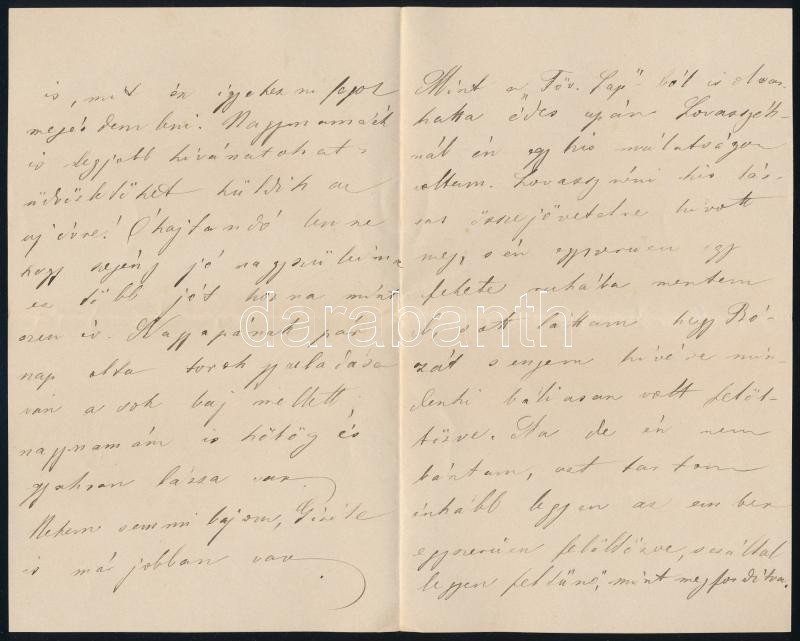 is, mit én igyekezni fogok
megérdemleni. Nagymamáék
is legjobb kivánatokat s
üdvözletöket küldik az
uj évre! Óhajtandó lenne
hogy szegény jó nagyszüleimnek
ez több jót hozna mint
ezen év. Nagyapának pár
nap olta torokgyuladása
van a sok baj mellett
nagymamám is köhög és
gyakran lássa van.
Nekem semmi bajom, Gizéle
is már jobban van.
Mint a „Föv. Lap"-ból is olvas-
hatta édes apám Lovasszék-
nál én egy kis mulatságon
voltam. Lovasszyné kis tár-
sas összejövetelre hivott
meg, s én egyszerüen egy
fekete ruhába mentem
s ott láttam hogy Ró-
zát s engem kivéve min-
denki báliasan volt felöl-
tözve. Na de én nem
bántam, azt tartom
inkább legyen az ember
egyszerüen felöltözve, s ezáltal
legyen feltünő, mint megforditva.
darabanth